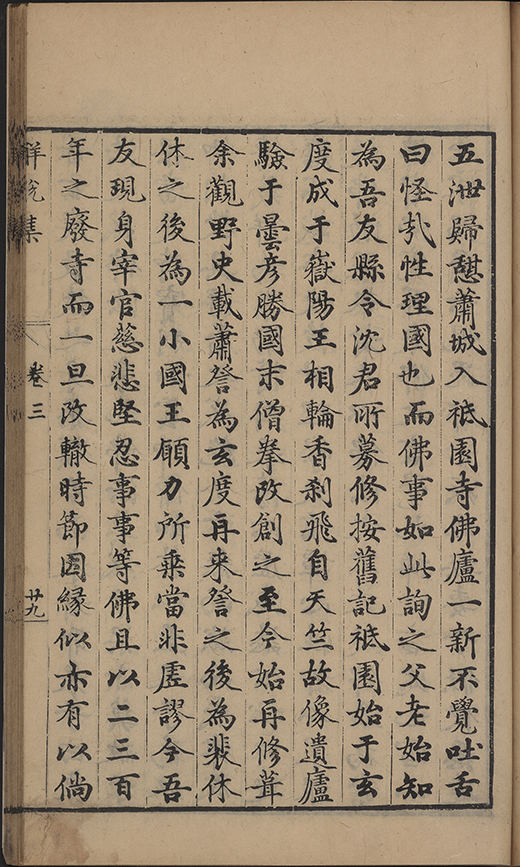 五泄歸憇蕭城入祗園寺佛廬一新不覺吐舌
曰怪㢤性理國也而佛事如此詢之父老始知
為吾友縣令沈君所募修按舊記祗園始于玄
度成于嶽陽王相輪香剎飛自天竺故像遺廬
驗于曇彦勝國末僧拳改創之至今始再修葺
余觀野史載蕭詧為玄度再来詧之後為裴休
休之後為一小國王願力所乗當非虛謬今吾
友現身宰官慈悲堅忍事事等佛且以二三百
年之廢寺而一旦改轍時節因緣似亦有以倘
解脫集
卷三
廿九